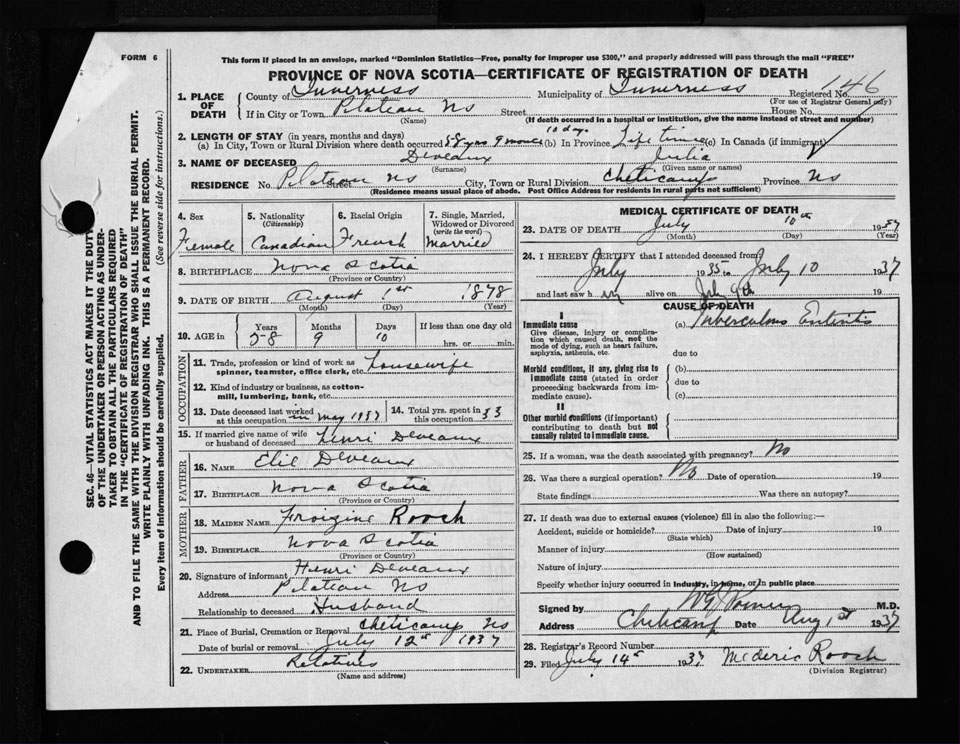 FORM 6
This form if placed in an envelope, marked "Dominion Statistics—Free, penalty for improper use $300," and properly addressed will pass through the mail "FREE"
PROVINCE OF NOVA SCOTIA—CERTIFICATE OF REGISTRATION OF DEATH
1. PLACE OF DEATH County of Inverness Municipality of Inverness Registered No. 146
(For use of Registrar General only)
If in City or Town Plateau NS Street House No.
(Name) (If death occurred in a hospital or institution, give the name instead of street and number)
2. LENGTH OF STAY (in years, months and days) 10 days
(a) In City, Town or Rural Division where death occurred 58 yrs 9 months (b) In Province Life time (c) In Canada (if immigrant)
3. NAME OF DECEASED Deveaux Julia
(Surname) (Given name or names)
RESIDENCE No. Plateau NS Street City, Town or Rural Division Cheticamp Province NS
(Residence means usual place of abode. Post Office Address for residents in rural parts not sufficient)
4. Sex Female
5. Nationality (Citizenship) Canadian
6. Racial Origin French
7. Single, Married, Widowed or Divorced (write the word) Married
8. BIRTHPLACE Nova Scotia
(Province or Country)
9. DATE OF BIRTH August 1st 1878
(Month) (Day) (Year)
10. AGE in Years Months Days If less than one day old
58 9 10 hrs. or min.
OCCUPATION
11. Trade, profession or kind of work as spinner, teamster, office clerk, etc. Housewife
12. Kind of industry or business, as cotton-mill, lumbering, bank, etc.
13. Date deceased last worked at this occupation in May 1937
14. Total yrs. spent in this occupation 33
15. If married give name of wife or husband of deceased Henri Deveaux
FATHER
16. NAME Elie Deveaux
17. BIRTHPLACE Nova Scotia
(Province or Country)
MOTHER
18. MAIDEN NAME Roach
19. BIRTHPLACE Nova Scotia
(Province or Country)
20. Signature of informant Henri Deveaux
Address Plateau NS
Relationship to deceased Husband
21. Place of Burial, Cremation or Removal Cheticamp NS
Date of burial or removal July 12 1937
22. UNDERTAKER Relatives
(Name and address)
MEDICAL CERTIFICATE OF DEATH
23. DATE OF DEATH July 10th 1937
(Month) (Day) (Year)
24. I HEREBY CERTIFY that I attended deceased from
July 1935 to July 10 1937
and last saw h er alive on July 9th 19
CAUSE OF DEATH
I
Immediate cause
Give disease, injury or complication which caused death, not the mode of dying, such as heart failure, asphyxia, asthenia, etc.
(a) Tuberculous Enteritis
due to
Morbid conditions, if any, giving rise to immediate cause (stated in order proceeding backwards from immediate cause).
(b)
due to
(c)
II
Other morbid conditions (if important) contributing to death but not causally related to immediate cause.
25. If a woman, was the death associated with pregnancy? No
26. Was there a surgical operation? No Date of operation 19
State findings Was there an autopsy?
27. If death was due to external causes (violence) fill in also the following:—
Accident, suicide or homicide? Date of injury 19
(State which)
Manner of injury
(How sustained)
Nature of injury
Specify whether injury occurred in Industry, in home, or in public place
Signed by M.D.
Address Cheticamp Date Aug 1st 1937
28. Registrar's Record Number
29. Filed July 14 1937 Mederic Roach
(Division Registrar)
SEC. 46—VITAL STATISTICS ACT MAKES IT THE DUTY
OF THE UNDERTAKER OR PERSON ACTING AS UNDER-
TAKER TO OBTAIN ALL THE PARTICULARS REQUIRED
IN THE "CERTIFICATE OF REGISTRATION OF DEATH"
AND TO FILE THE SAME WITH THE DIVISION REGISTRAR WHO SHALL ISSUE THE BURIAL PERMIT.
WRITE PLAINLY WITH UNFADING INK. THIS IS A PERMANENT RECORD.
Every item of information should be carefully supplied. (See reverse side for instructions.)